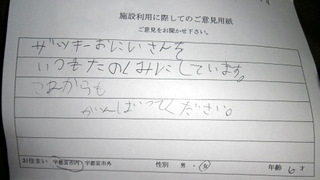 施設利用に際してのご意見用紙
ご意見をお聞かせ下さい。
ザッキーおにいさんを
いつもたのしみにしています。
これからも
がんばってください。
お住まい 宇都宮市内 宇都宮市外 性別 男・女 年齢 6才